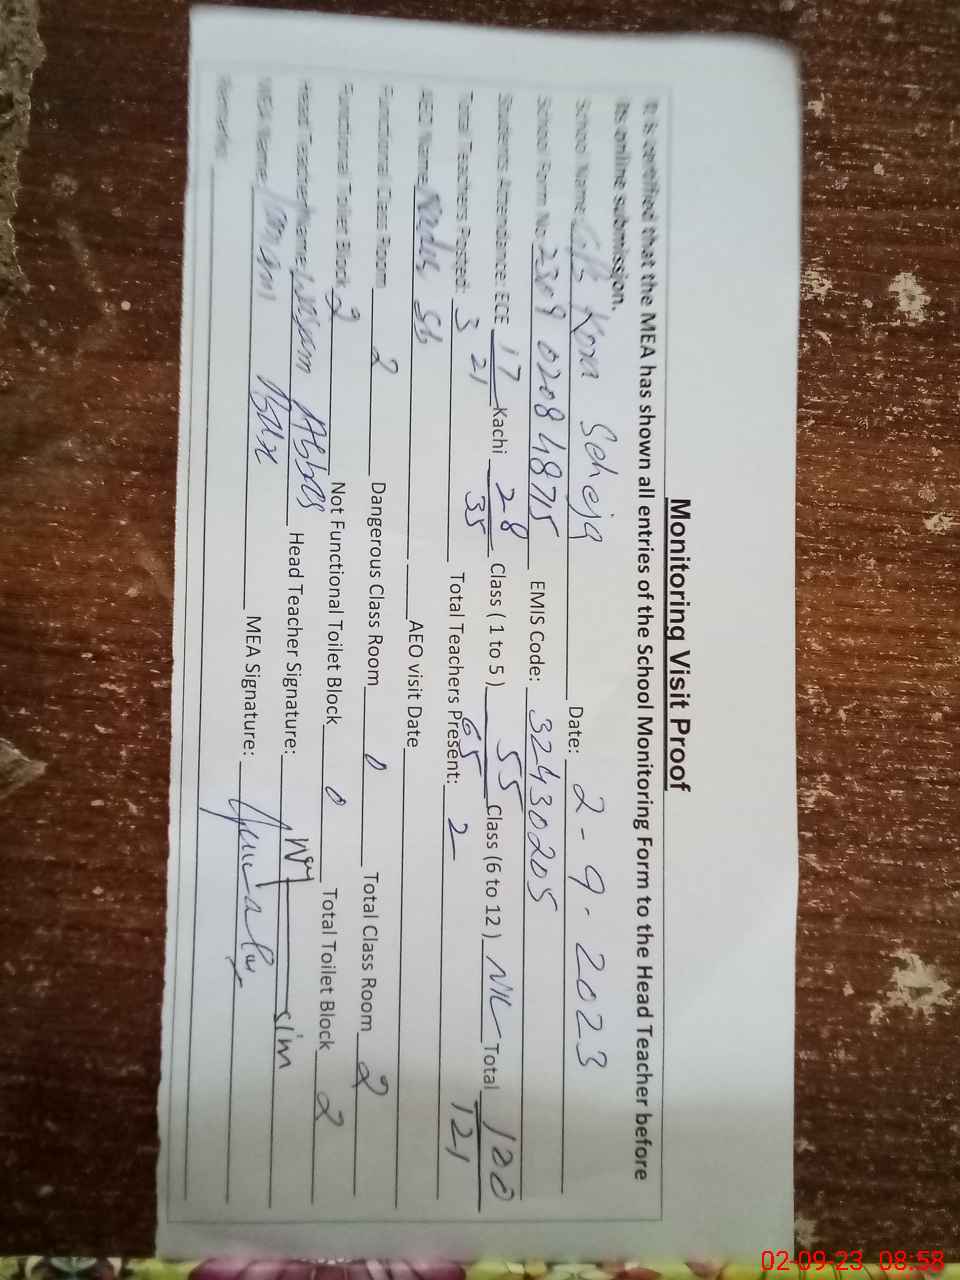 Monitoring Visit Proof
It is certified that the MEA has shown all entries of the School Monitoring Form to the Head Teacher before
its online submission.
School Name: Kora Date: 2-9-2023
School Form No. 2309 0208 48715 EMIS Code: 32430205
Students Attendance: ECE 17/21 Kachi 28/35 Class ( 1 to 5 ) 55/65 Class (6 to 12 ) NIL Total 100/121
Total Teachers Posted: 3 Total Teachers Present: 2
AEO Name AEO visit Date
Functional Class Room 2 Dangerous Class Room 0 Total Class Room 2
Functional Toilet Block 2 Not Functional Toilet Block 0 Total Toilet Block 2
Head Teacher Name: Abbas Head Teacher Signature:
MEA Name MEA Signature:
Remarks:
02-09-23 08:58